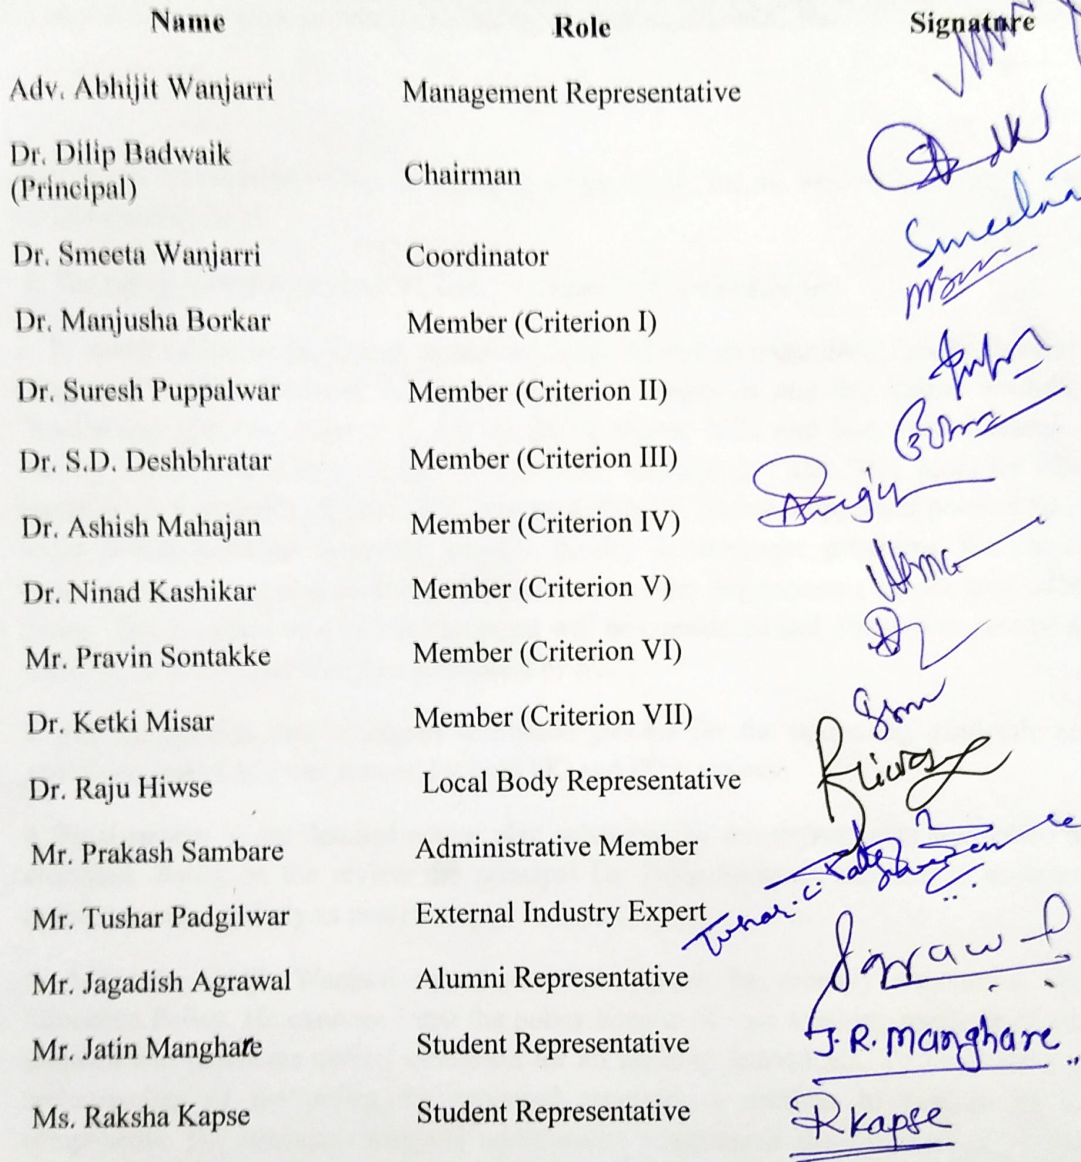 Name Role Signature
Adv. Abhijit Wanjarri Management Representative
Dr. Dilip Badwaik
(Principal) Chairman
Dr. Smeeta Wanjarri Coordinator Smeeta
Dr. Manjusha Borkar Member (Criterion I)
Dr. Suresh Puppalwar Member (Criterion II)
Dr. S.D. Deshbhratar Member (Criterion III)
Dr. Ashish Mahajan Member (Criterion IV)
Dr. Ninad Kashikar Member (Criterion V)
Mr. Pravin Sontakke Member (Criterion VI)
Dr. Ketki Misar Member (Criterion VII)
Dr. Raju Hiwse Local Body Representative
Mr. Prakash Sambare Administrative Member
Mr. Tushar Padgilwar External Industry Expert Tushar.C.
Mr. Jagadish Agrawal Alumni Representative
Mr. Jatin Manghate Student Representative J.R. Manghare
Ms. Raksha Kapse Student Representative Rkapse